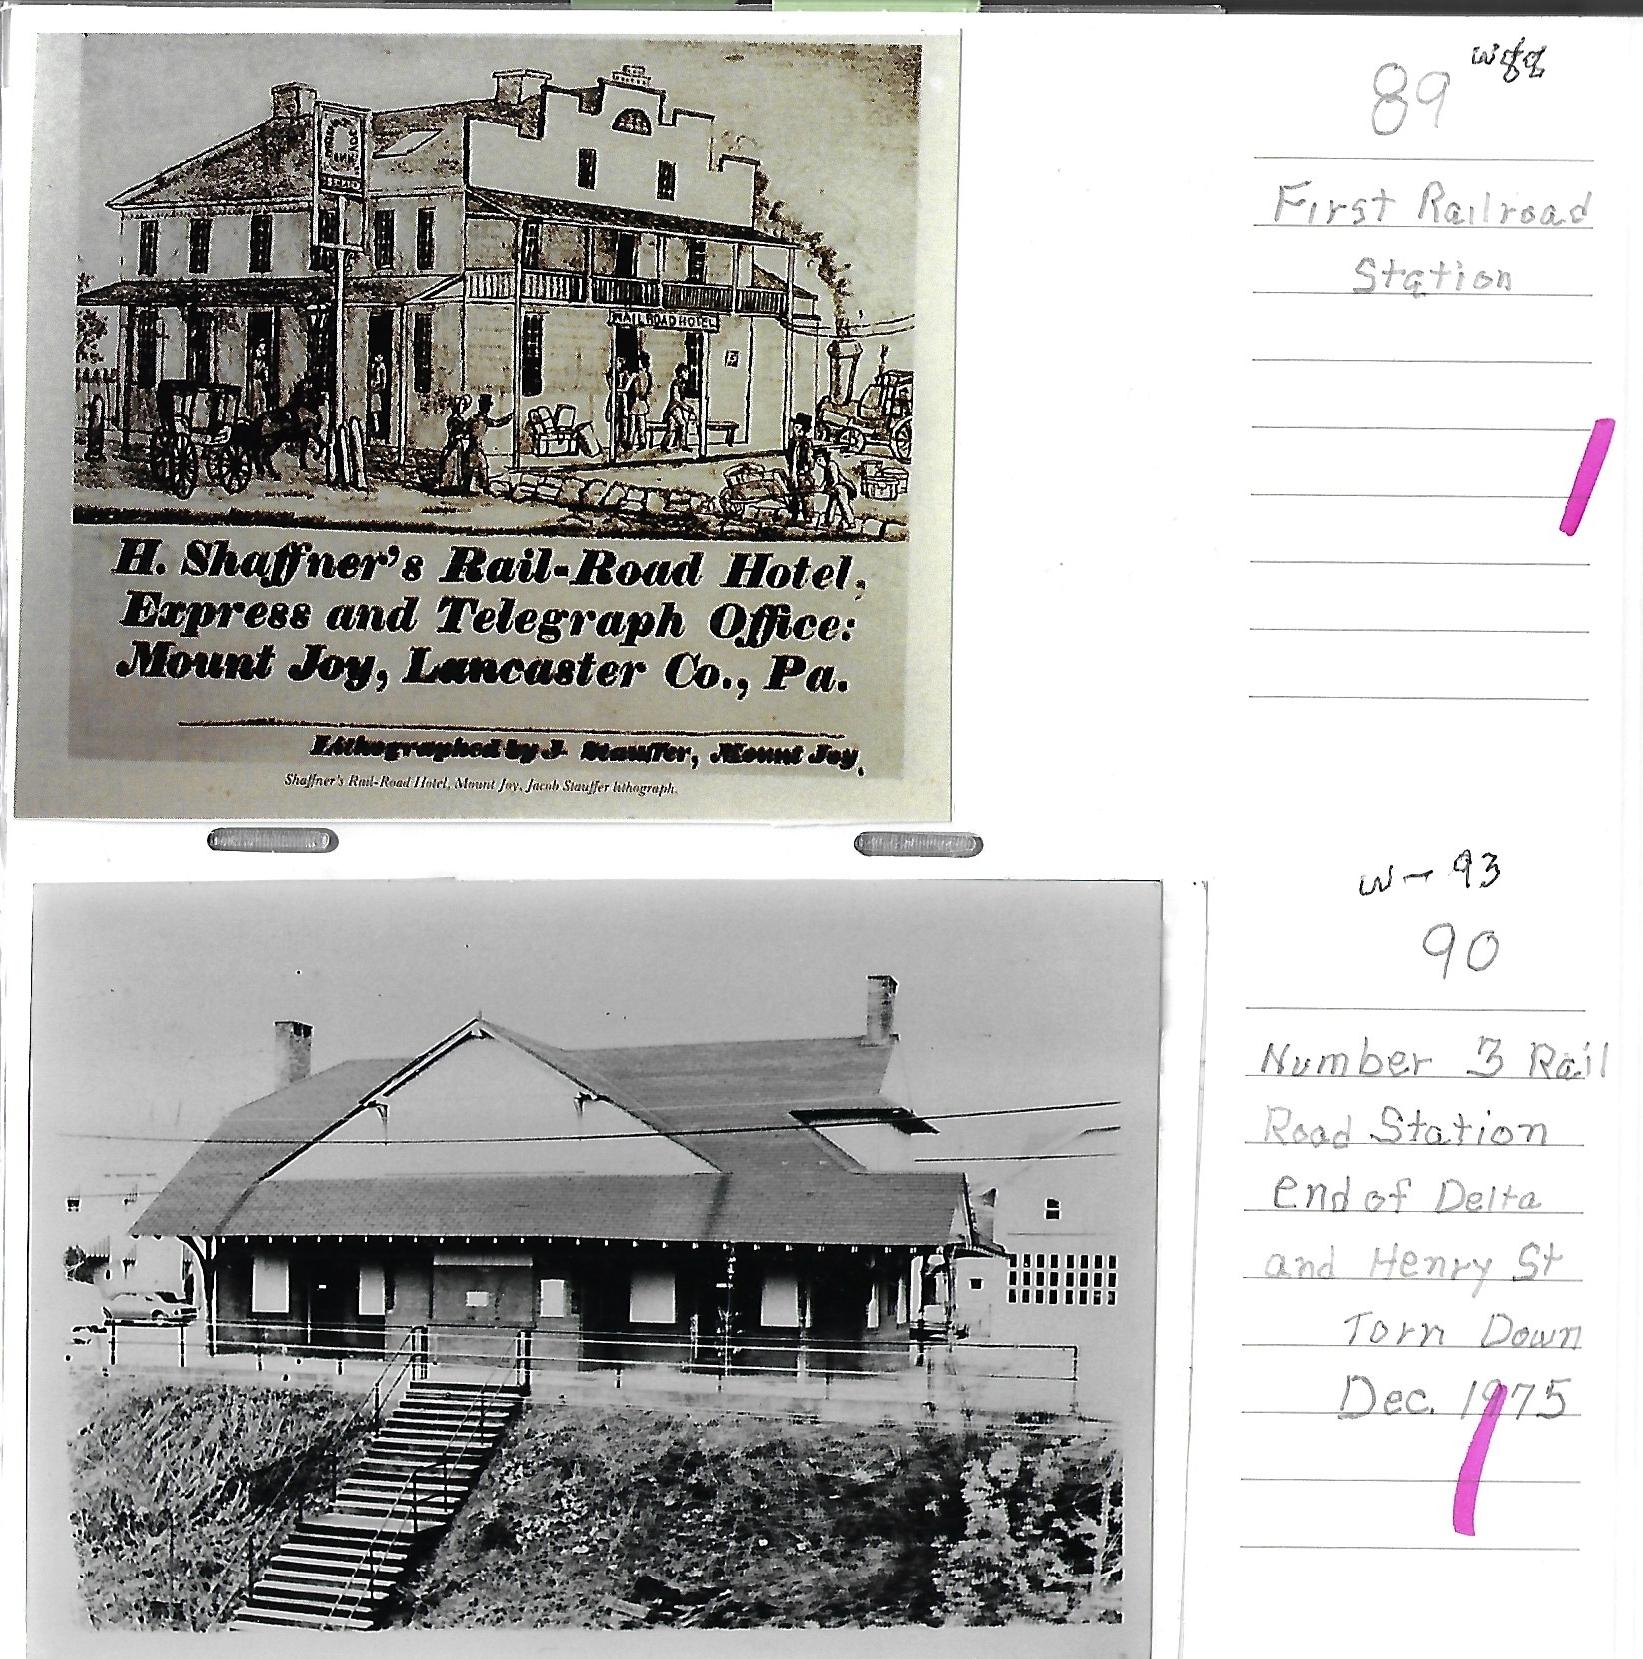 89
First Railroad
Station
RAILROAD HOTEL
H. Shaffner's Rail-Road Hotel,
Express and Telegraph Office:
Mount Joy, Lancaster Co., Pa.
Lithographed by J. Stauffer, Mount Joy.
Shaffner's Rail-Road Hotel, Mount Joy, Jacob Stauffer lithograph.
W-93
90
Number 3 Rail
Road Station
end of Delta
and Henry St
Torn Down
Dec. 1975